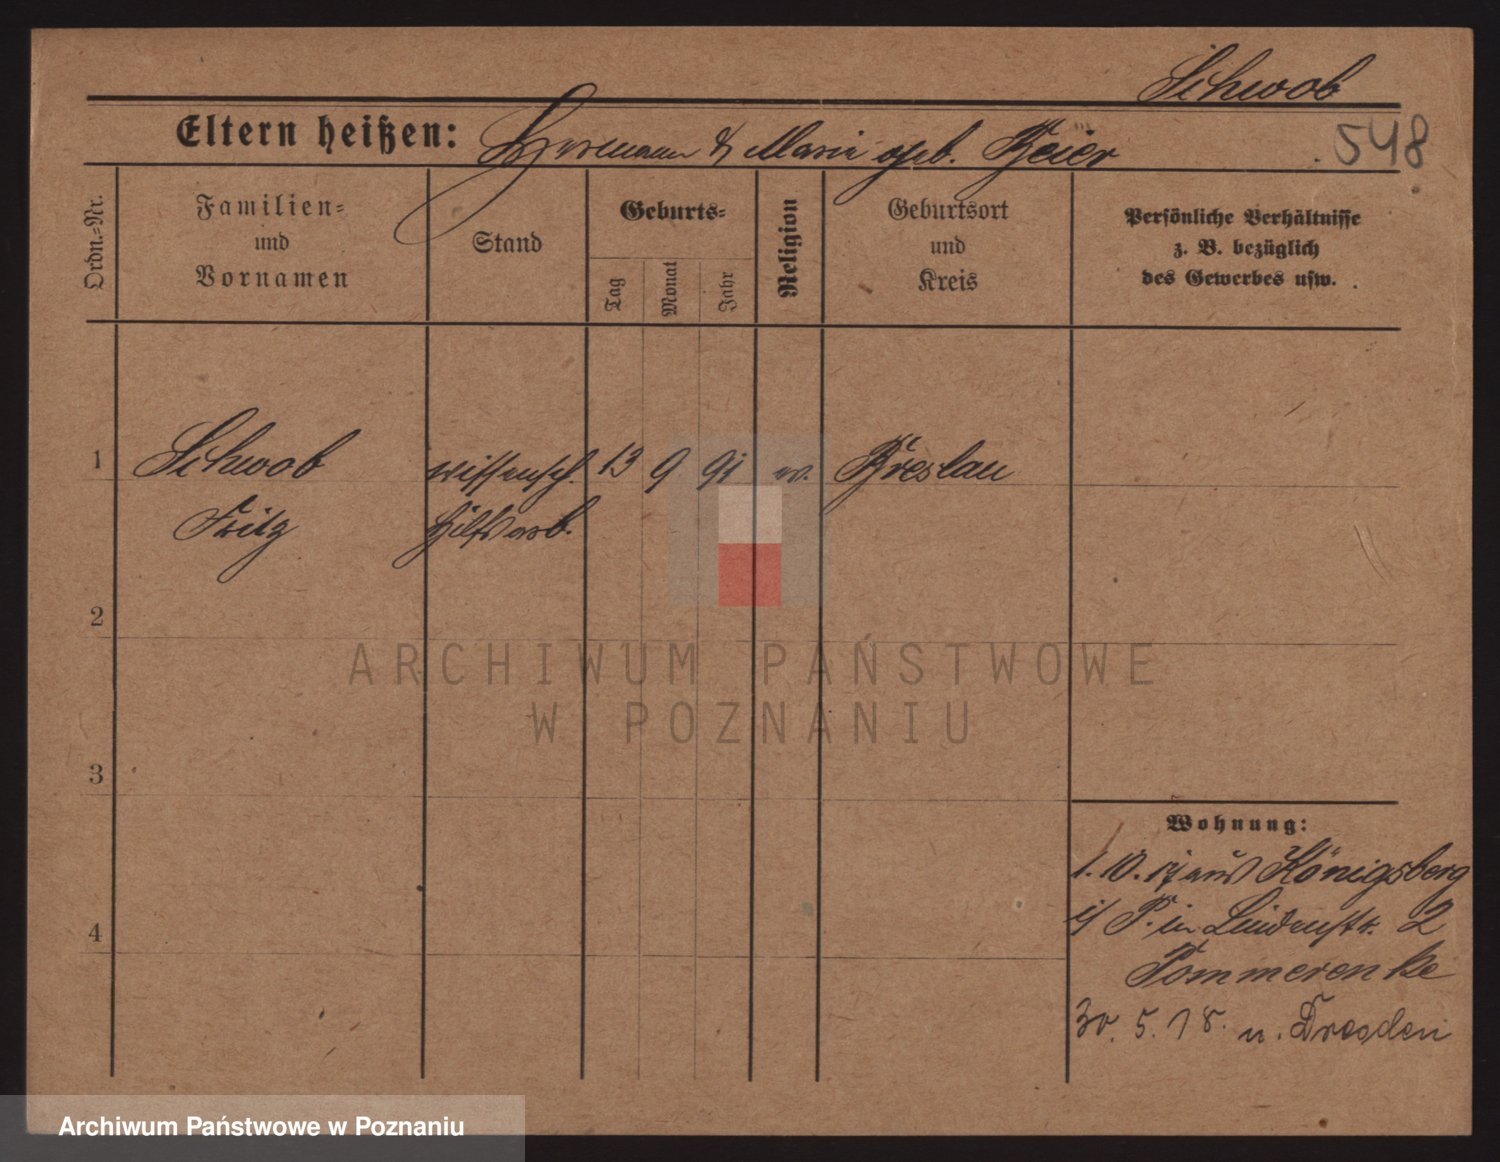 Schwob
Eltern heißen: Hermann & Maria geb. Beier
548
Ordn.-Nr.
Familien-
und
Vornamen
Stand
Geburts-
Tag
Monat
Jahr
Religion
Geburtsort
und
Kreis
Persönliche Verhältnisse
z. B. bezüglich
des Gewerbes usw.
1 Schwob wissensch. 13 9 91 Breslau
Fritz Hilfsarb.
2
3
4
Wohnung:
1. 10. 17 aus Königsberg
i/ P. in Lindenstr. 2
Pommerenke
30. 5. 18. n. Dresden
ARCHIWUM PAŃSTWOWE
W POZNANIU
Archiwum Państwowe w Poznaniu